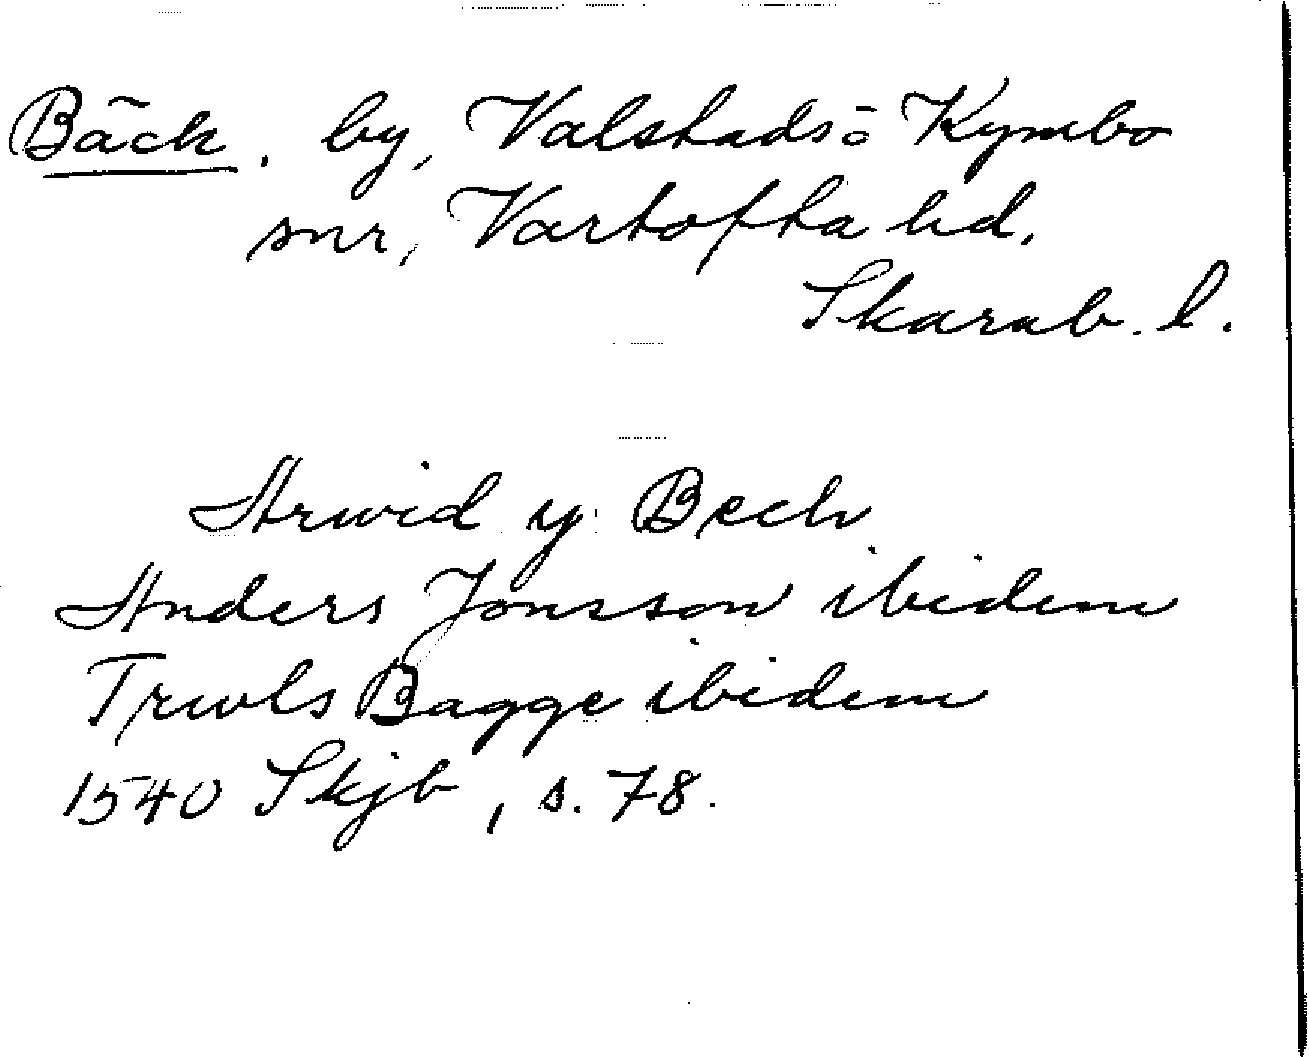 Bäck. by, Valstads ö Kymbo
snr, Vartofta hd.
Skarab. l.
Arwid y Bech
Anders Jonsson ibidem
Trwls Bagge ibidem
1540 Skjb, s. 78.